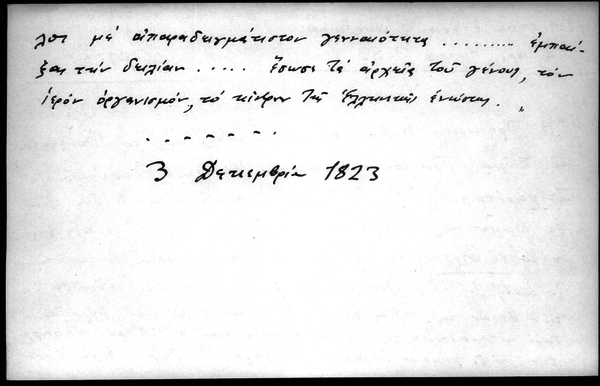 λοι μέ ἀπαραδειγμάτιστον γενναιότητα ......... ἐμπαί-
ξαι τήν δειλίαν ..... ἔσωσε τά ἀρχεῖα τοῦ γένους, τόν
ἱερόν ὀργανισμόν, τό κέντρον τῆς Ἑλληνικῆς ἑνώσεως.
. - - - - - .
3 Δεκεμβρίου 1823